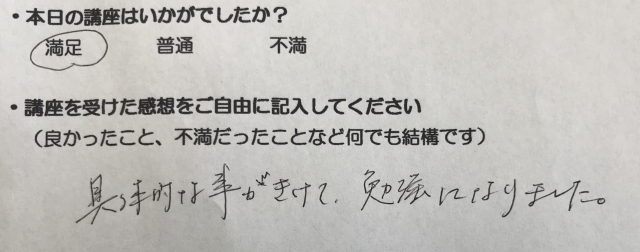 ・本日の講座はいかがでしたか？
満足 普通 不満
・講座を受けた感想をご自由に記入してください
（良かったこと、不満だったことなど何でも結構です）
具体的な事がきけて、勉強になりました。